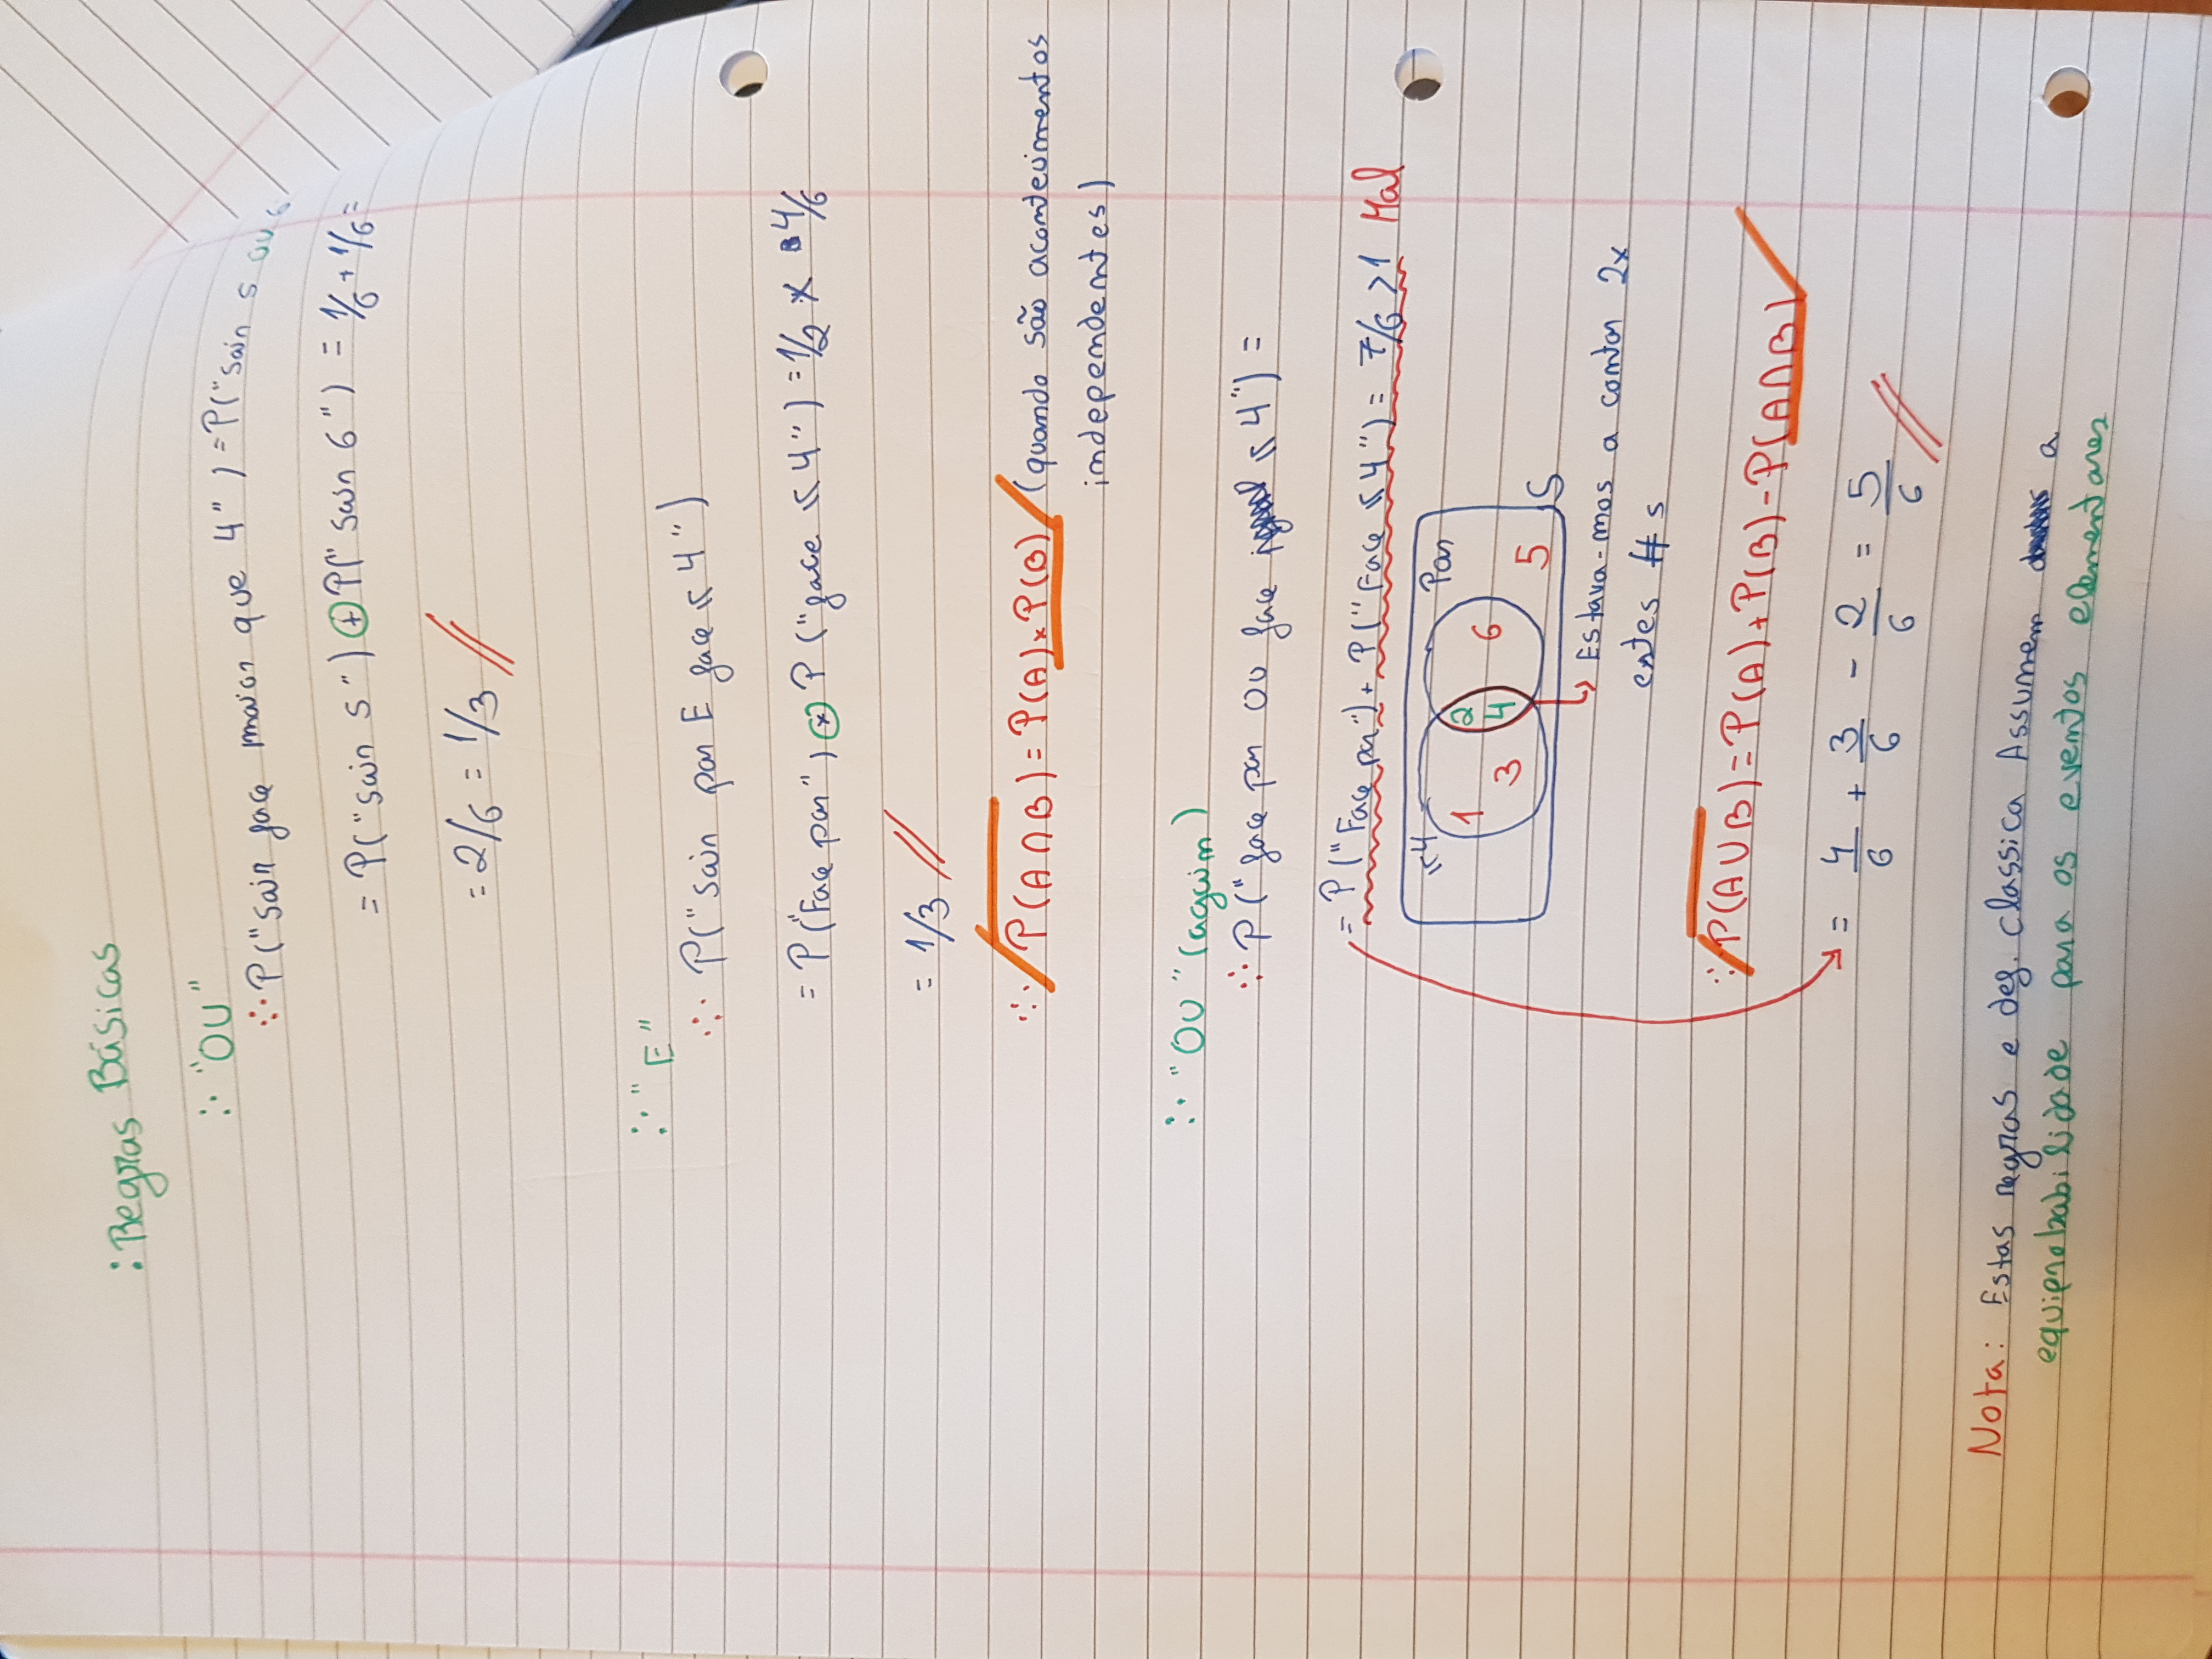 : Regras Básicas
∴ "OU"
∴ P("Sair face maior que 4") = P("Sair 5 ou 6
= P("Sair 5") + P("Sair 6") = 1/6 + 1/6 =
= 2/6 = 1/3 //
∴ "E"
∴ P("Sair par E face ≤ 4")
= P("Face par") × P("face ≤ 4") = 1/2 × 4/6
= 1/3 //
∴ P(A∩B) = P(A) × P(B) (quando são acontecimentos
independentes)
∴ "OU" (again)
∴ P("face par OU face ≤ 4") =
= P("Face par") + P("Face ≤ 4") = 7/6 > 1 Mal
≤4 Par
1 2 6
3 4 5 S
↳ Estava-mos a contar 2x
estes #s
∴ P(A∪B) = P(A) + P(B) - P(A∩B)
= 4/6 + 3/6 - 2/6 = 5/6 //
Nota: Estas regras e def. classica Assumem a
equiprobabilidade para os eventos elementares